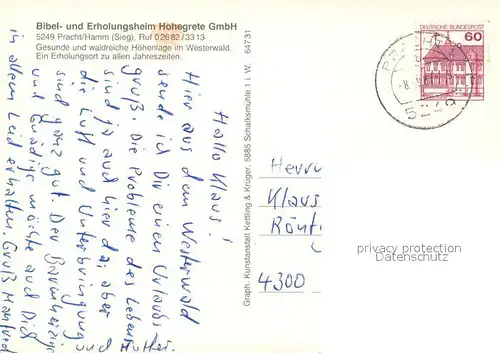 Bibel- und Erholungsheim Hohegrete GmbH
5249 Pracht/Hamm (Sieg), Ruf 02682/3313
Gesunde und waldreiche Höhenlage im Westerwald.
Ein Erholungsort zu allen Jahreszeiten.
Hallo Klaus!
Hier aus dem Westerwald
sende ich Dir einen Urlaubs
gruß. Die Probleme des Lebens
sind ja auch hier da, aber
die Luft und Unterbringung
sind ganz gut. Der Barmherzige
und Gnädige möchte auch Dich
in allem Leid erhalten. Gruß Manfred
und Mutter.
Graph. Kunstanstalt Kettling & Krüger, 5885 Schalksmühle 1 i. W. 64731
DEUTSCHE BUNDESPOST
60
5249
Herrn
Klaus
Rönt
4300
privacy protection
Datenschutz